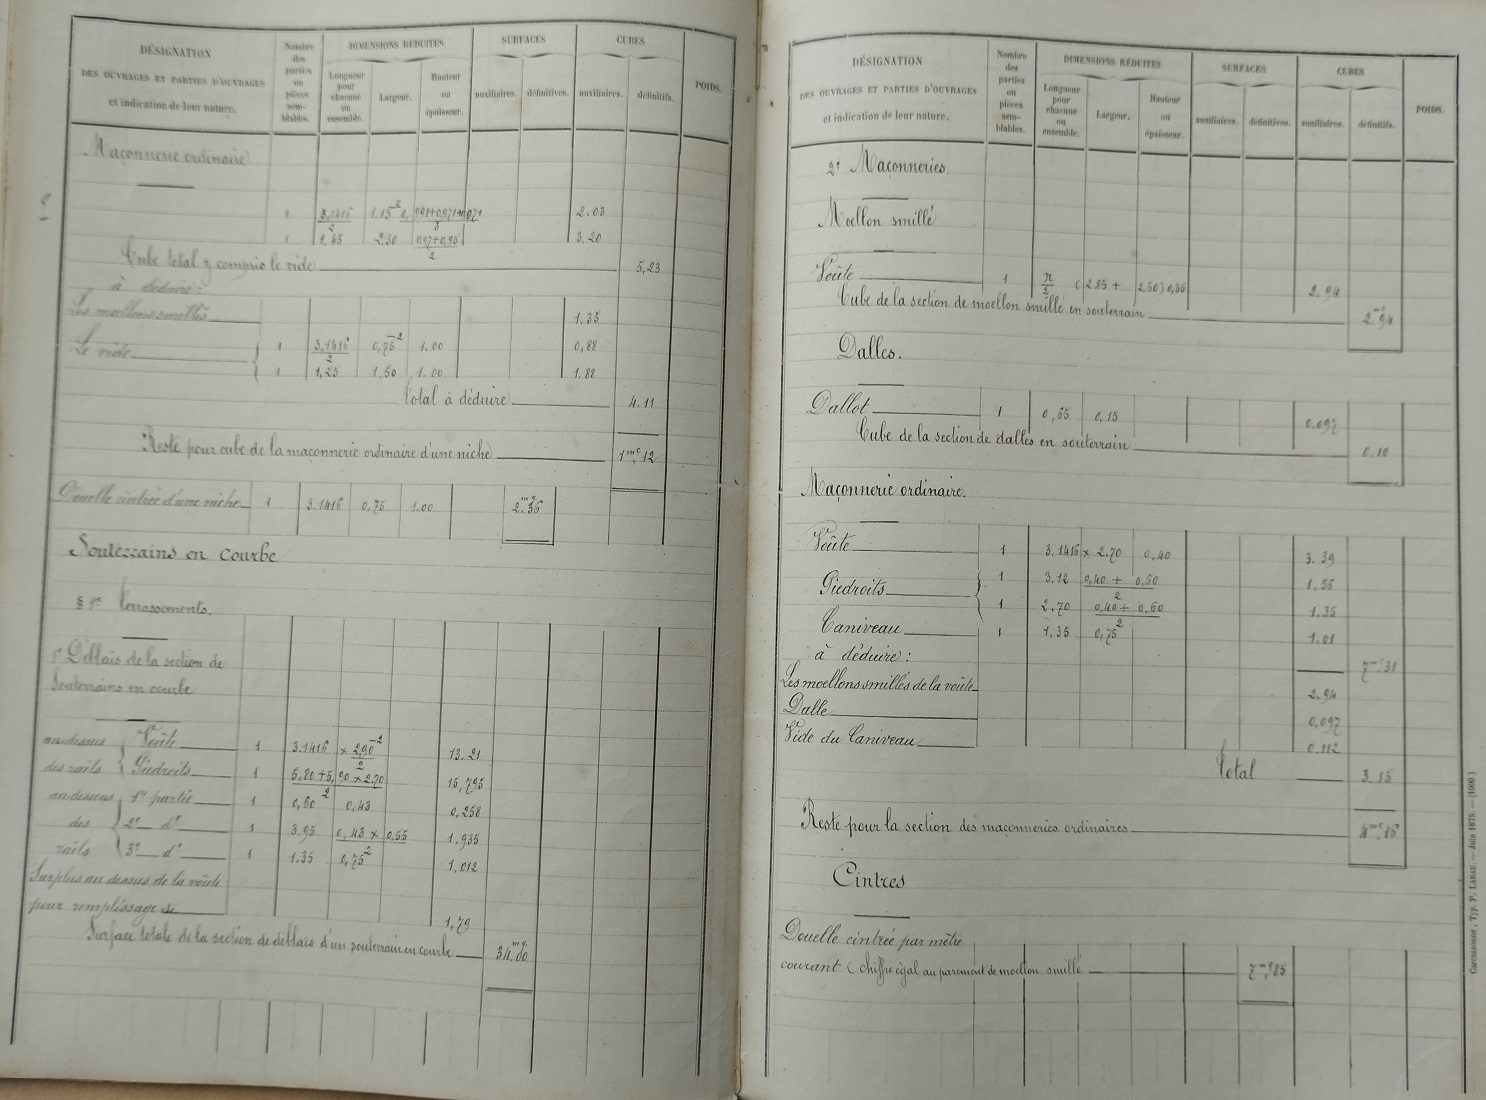 DÉSIGNATION
DES OUVRAGES ET PARTIES D'OUVRAGES
et indication de leur nature.
Nombre des parties ou pièces semblables.
DIMENSIONS RÉDUITES.
Longueur pour chacune ou ensemble.
Largeur.
Hauteur ou épaisseur.
SURFACES
auxiliaires.
définitives.
CUBES
auxiliaires.
définitifs.
POIDS.
Maçonnerie ordinaire
1 3,1416/2 1.15² 2.03
1 1,45 2,30 0,97+0,95/2 3.20
Cube total y compris le vide 5,23
à déduire:
Les moellons smillés 1.35
Le vide { 1 3,1416/2 0,75² 1.00 0,88
1 1,25 1,50 1.00 1.88
Total à déduire 4.11
Reste pour cube de la maçonnerie ordinaire d'une niche 1mc,12
Douelle cintrée d'une niche 1 3.1416 0,75 1.00 2mq,36
Souterrains en courbe
§ 1er Terrassements.
1° Déblais de la section de
Souterrains en courbe
au dessus { Voûte 1 3.1416 × 2,90²/2 13.21
des rails { Piedroits 1 5,80+5,90×2,70 15,795
au dessous { 1re partie 1 0,60² 0,43 0,258
des { 2e d° 1 3.95 0,43 × 0,55 1.935
rails { 3e d° 1 1.35 0,75² 1,012
Surplus au dessus de la voûte
pour remplissage 1,79
Surface totale de la section de déblais d'un souterrain en courbe 34mq,00
DÉSIGNATION
DES OUVRAGES ET PARTIES D'OUVRAGES
et indication de leur nature.
Nombre des parties ou pièces semblables.
DIMENSIONS RÉDUITES.
Longueur pour chacune ou ensemble.
Largeur.
Hauteur ou épaisseur.
SURFACES
auxiliaires.
définitives.
CUBES
auxiliaires.
définitifs.
POIDS.
2° Maçonneries.
Moellon smillé
Voûte 1 π/2 (2.85 + 2.50) 0,35 2.94
Cube de la section de moellon smillé en souterrain 2mc,94
Dalles.
Dallot 1 0,65 0,15 0.097
Cube de la section de dalles en souterrain 0.10
Maçonnerie ordinaire.
Voûte 1 3,1416 × 2.70 0,40 3.39
Piedroits { 1 3,12 0,40 + 0,60/2 1.56
1 2.70 0,40 + 0,60/2 1.35
Caniveau 1 1.35 0,75² 1.01
à déduire: 7mc,31
Les moellons smillés de la voûte 2.94
Dalle 0,097
Vide du Caniveau 0.112
Total 3.15
Reste pour la section des maçonneries ordinaires 4mc,15
Cintres
Douelle cintrée par mètre
courant (chiffre égal au parement de moellon smillé 7mq,85
Carcassonne, Typ. P. LABAU. — Juin 1875. — (1000.)